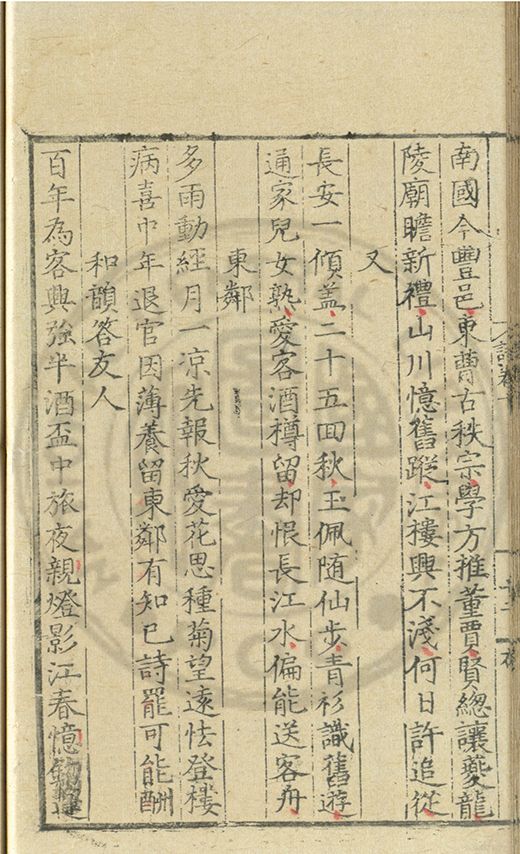 南國今豐邑東曹古秩宗學方推董賈賢總讓夔龍
陵廟瞻新禮山川憶舊蹤江樓興不淺何日許追從
又
長安一傾盖二十五回秋玉佩随仙步青衫識舊遊
通家兒女熟愛客酒樽留却恨長江水偏能送客舟
東鄰
多雨動經月一凉先報秋愛花思種菊望遠怯登樓
病喜中年退官因薄養留東鄰有知已詩罷可能酬
和韻答友人
百年為客興強半酒盃中旅夜親燈影江春憶